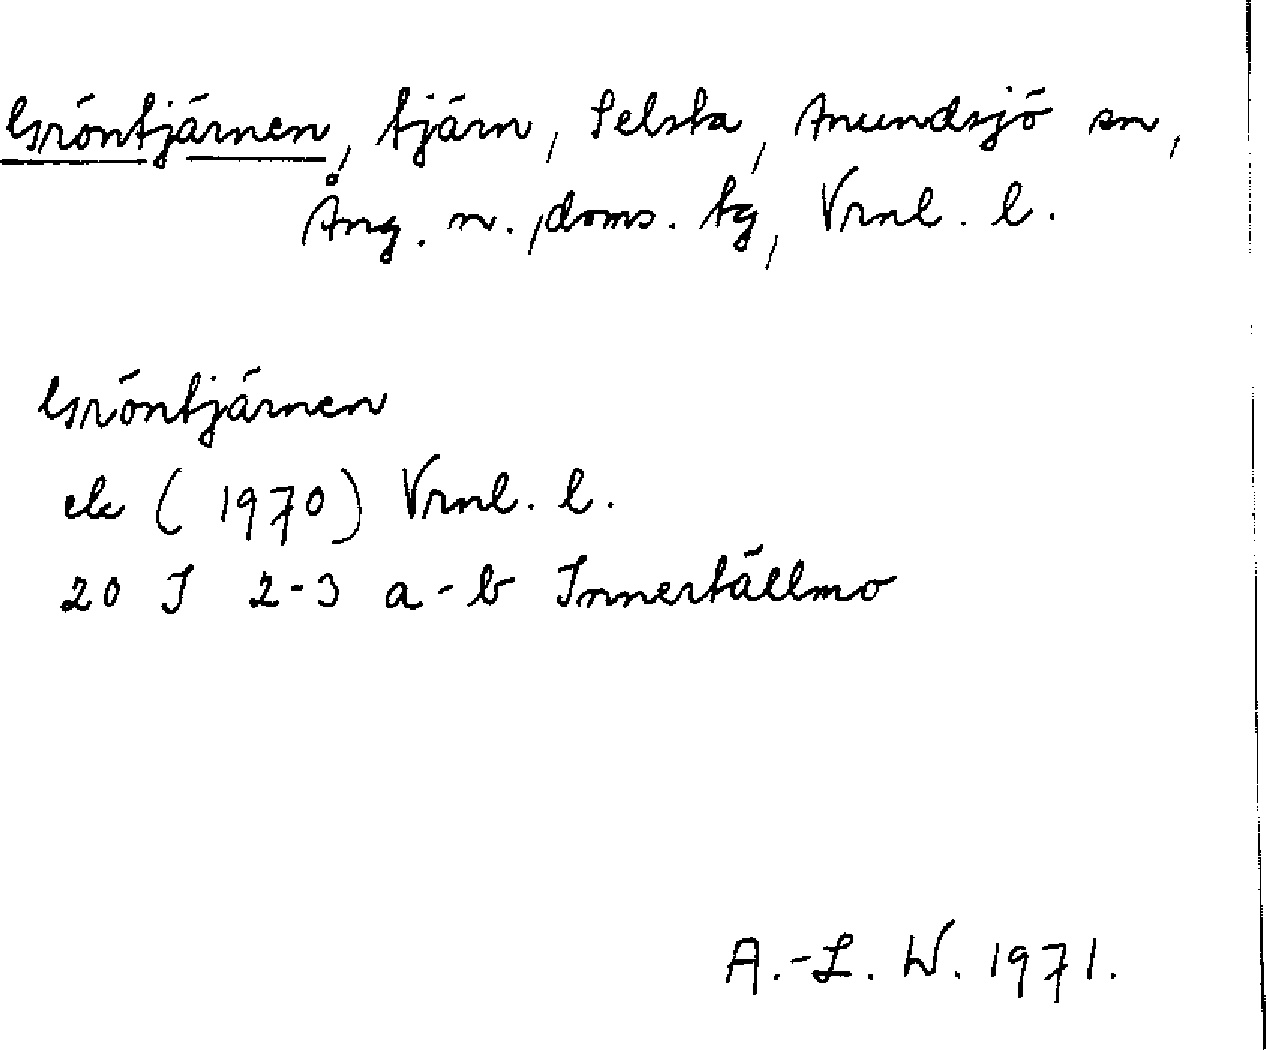 Gröntjärnen, tjärn, Selsta, Anundsjö sn,
Ång. n., doms. tg, Vrnl. l.
Gröntjärnen
ek (1970) Vrnl. l.
20 I 2-3 a-b Innertällmo
A.-L. W. 1971.